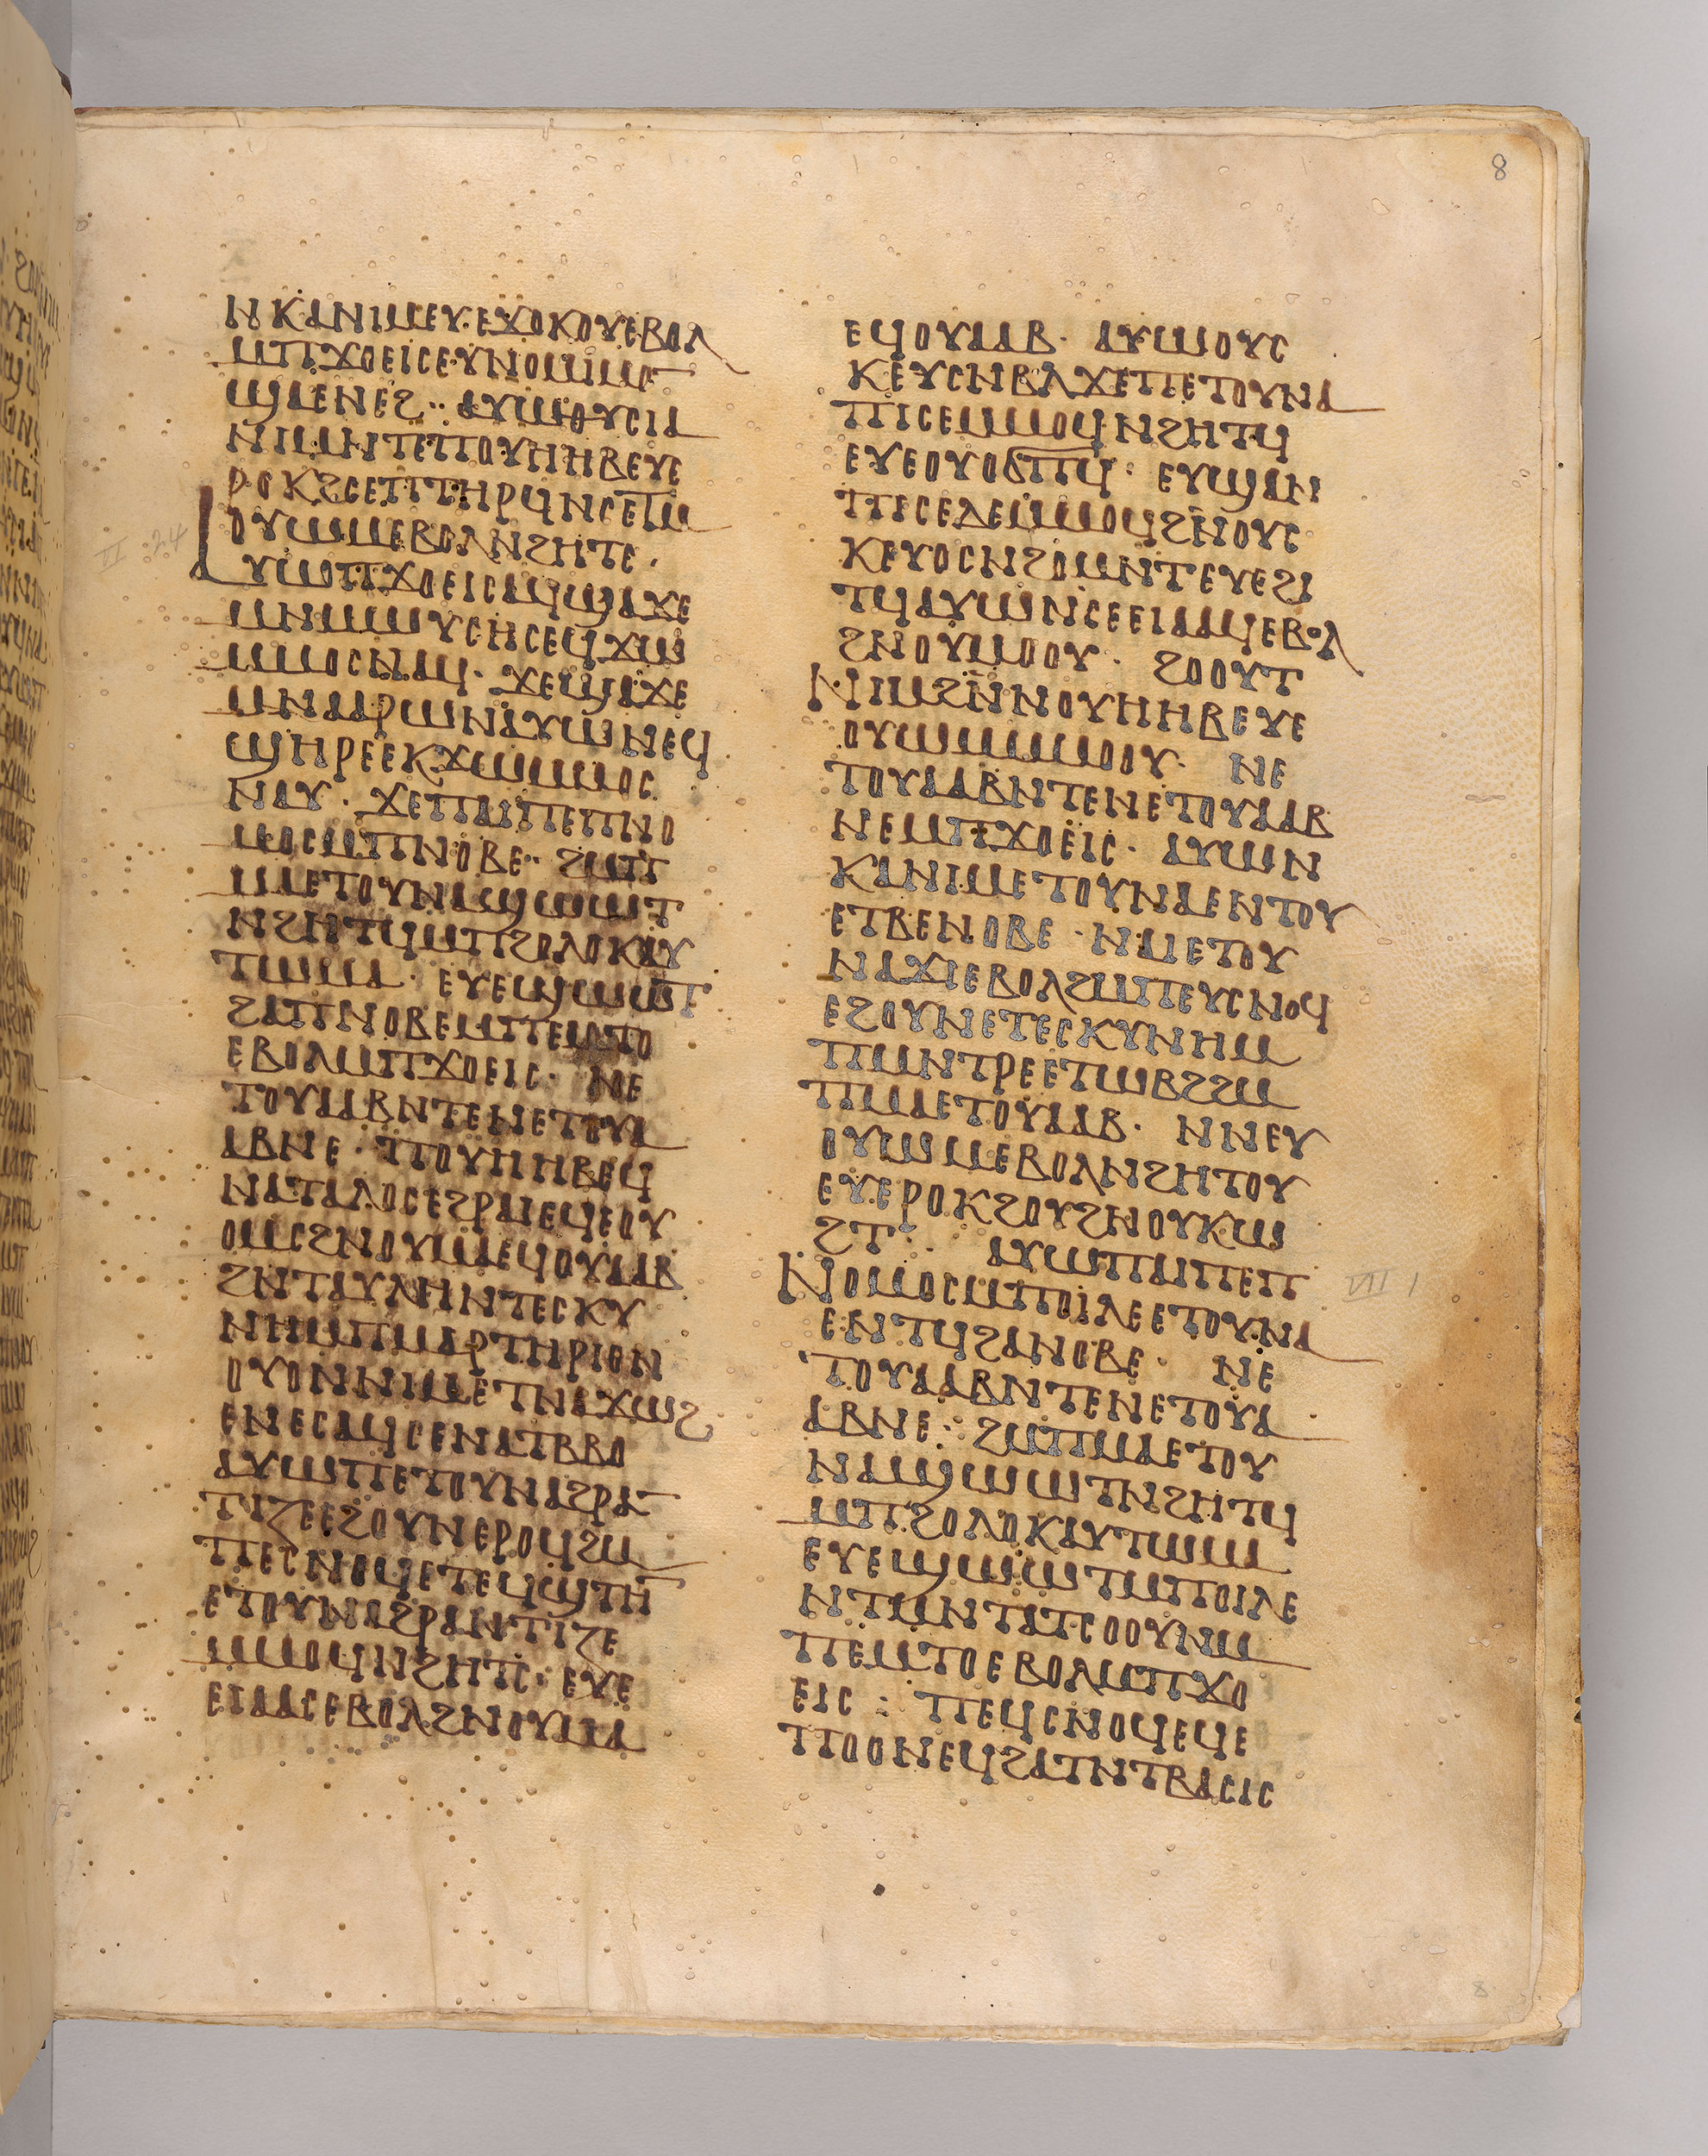 8
ⲛⲕⲁⲛⲓⲙⲉⲩ·ⲉϫⲟⲕⲟⲩⲉⲃⲟⲗ
ⲙⲡϫⲟⲉⲓⲥⲉⲩⲛⲟⲙⲓⲙⲟⲛ
ϣⲁⲉⲛⲉϩ·· ⲁⲩⲱⲑⲩⲥⲓⲁ
ⲛⲓⲙⲛⲧⲉⲡⲟⲩⲏⲏⲃⲉⲩⲉ
ⲣⲟⲕϩⲥⲉⲡⲧⲏⲣϥⲛⲥⲉⲧⲙ
ⲟⲩⲱⲙⲉⲃⲟⲗⲛϩⲏⲧⲥ·
ⲁⲩⲱⲡϫⲟⲉⲓⲥⲁϥϣⲁϫⲉ
ⲙⲛⲙⲱⲩⲥⲏⲥⲉϥϫⲱ
ⲙⲙⲟⲥⲛⲁϥ· ϫⲉϣⲁϫⲉ
ⲙⲛⲁⲁⲣⲱⲛⲁⲩⲱⲛⲉϥ
ϣⲏⲣⲉⲉⲕϫⲱⲙⲙⲟⲥ
ⲛⲁⲩ· ϫⲉⲡⲁⲓⲡⲉⲡⲛⲟ
ⲙⲟⲥⲙⲡⲛⲟⲃⲉ·· ϩⲙⲡ
ⲙⲁⲉⲧⲟⲩⲛⲁϣⲱⲱⲧ
ⲛϩⲏⲧϥⲙⲡϩⲟⲗⲟⲕⲁⲩ
ⲧⲱⲙⲁ· ⲉⲩⲉϣⲱⲱⲧ
ϩⲁⲡⲛⲟⲃⲉⲙⲡⲉⲙⲧⲟ
ⲉⲃⲟⲗⲙⲡϫⲟⲉⲓⲥ· ⲛⲉ
ⲧⲟⲩⲁⲁⲃⲛⲧⲉⲛⲉⲧⲟⲩⲁ
ⲁⲃⲛⲉ· ⲡⲟⲩⲏⲏⲃⲉϥ
ⲛⲁⲧⲁⲗⲟⲥⲉϩⲣⲁⲓⲉϥⲉⲟⲩ
ⲟⲙⲥϩⲛⲟⲩⲙⲁⲉϥⲟⲩⲁⲁⲃ
ϩⲛⲧⲁⲩⲗⲏⲛⲧⲉⲥⲕⲩ
ⲛⲏⲙⲡⲙⲁⲣⲧⲏⲣⲓⲟⲛ
ⲟⲩⲟⲛⲛⲓⲙⲉⲧⲛⲁϫⲱϩ
ⲉⲛⲉⲥⲁϥⲥⲉⲛⲁⲧⲃⲃⲟ
ⲁⲩⲱⲡⲉⲧⲟⲩⲛⲁϩⲣⲁⲛ
ⲧⲓⲍⲉⲉϩⲟⲩⲛⲉⲣⲟϥϩⲙ
ⲡⲉⲥⲛⲟϥⲉⲧⲉϥϣⲧⲏⲛ
ⲉⲧⲟⲩⲛⲁϩⲣⲁⲛⲧⲓⲍⲉ
ⲙⲙⲟϥⲛϩⲏⲧⲥ· ⲉⲩⲉ
ⲉⲓⲁⲁⲥⲉⲃⲟⲗϩⲛⲟⲩⲙⲁ
ⲉϥⲟⲩⲁⲁⲃ· ⲁⲩⲱⲟⲩⲥ
ⲕⲉⲩⲥⲛⲃⲗϫⲉⲡⲉⲧⲟⲩⲛⲁ
ⲡⲓⲥⲉⲙⲙⲟϥⲛϩⲏⲧϥ
ⲉⲩⲉⲟⲩⲟϭⲡϥ· ⲉⲩϣⲁⲛ
ⲡⲓⲥⲉⲇⲉⲙⲙⲟϥϩⲛⲟⲩⲥ
ⲕⲉⲩⲟⲥⲛϩⲟⲙⲛⲧⲉⲩⲉϩⲓ
ⲧϥⲁⲩⲱⲛⲥⲉⲉⲓⲁⲁϥⲉⲃⲟⲗ
ϩⲛⲟⲩⲙⲟⲟⲩ· ϩⲟⲟⲩⲧ
ⲛⲓⲙϩⲛⲛⲟⲩⲏⲏⲃⲉⲩⲉ
ⲟⲩⲱⲙⲙⲙⲟⲟⲩ· ⲛⲉ
ⲧⲟⲩⲁⲁⲃⲛⲧⲉⲛⲉⲧⲟⲩⲁⲁⲃ
ⲛⲉⲙⲡϫⲟⲉⲓⲥ· ⲁⲩⲱⲛ
ⲕⲁⲛⲓⲙⲉⲧⲟⲩⲛⲁⲉⲛⲧⲟⲩ
ⲉⲧⲃⲉⲛⲟⲃⲉ·ⲛⲁⲓⲉⲧⲟⲩ
ⲛⲁϫⲓⲉⲃⲟⲗϩⲙⲡⲉⲩⲥⲛⲟϥ
ⲉϩⲟⲩⲛⲉⲧⲉⲥⲕⲩⲛⲏⲙ
ⲡⲙⲛⲧⲣⲉⲉⲧⲱⲃϩϩⲙ
ⲡⲙⲁⲉⲧⲟⲩⲁⲁⲃ· ⲛⲛⲉⲩ
ⲟⲩⲱⲙⲉⲃⲟⲗⲛϩⲏⲧⲟⲩ
ⲉⲩⲉⲣⲟⲕϩⲟⲩϩⲛⲟⲩⲕⲱ
ϩⲧ·· ⲁⲩⲱⲡⲁⲓⲡⲉⲡ
ⲛⲟⲙⲟⲥⲙⲡⲟⲓⲗⲉⲉⲧⲟⲩⲛⲁ
ⲉⲛⲧϥϩⲁⲛⲟⲃⲉ· ⲛⲉ
ⲧⲟⲩⲁⲁⲃⲛⲧⲉⲛⲉⲧⲟⲩⲁ
ⲁⲃⲛⲉ·· ϩⲙⲡⲙⲁⲉⲧⲟⲩ
ⲛⲁϣⲱⲱⲧⲛϩⲏⲧϥ
ⲙⲡϩⲟⲗⲟⲕⲁⲩⲧⲱⲙⲁ
ⲉⲩⲉϣⲱⲱⲧⲙⲡⲟⲓⲗⲉ
ⲛⲧⲙⲛⲧⲁⲧⲥⲟⲟⲩⲛⲙ
ⲡⲉⲙⲧⲟⲉⲃⲟⲗⲙⲡϫⲟ
ⲉⲓⲥ : ⲡⲉϥⲥⲛⲟϥⲉϥⲉ
ⲡⲟⲟⲛⲉϥϩⲁⲧⲛⲧⲃⲁⲥⲓⲥ
VI 24
VII 1
8